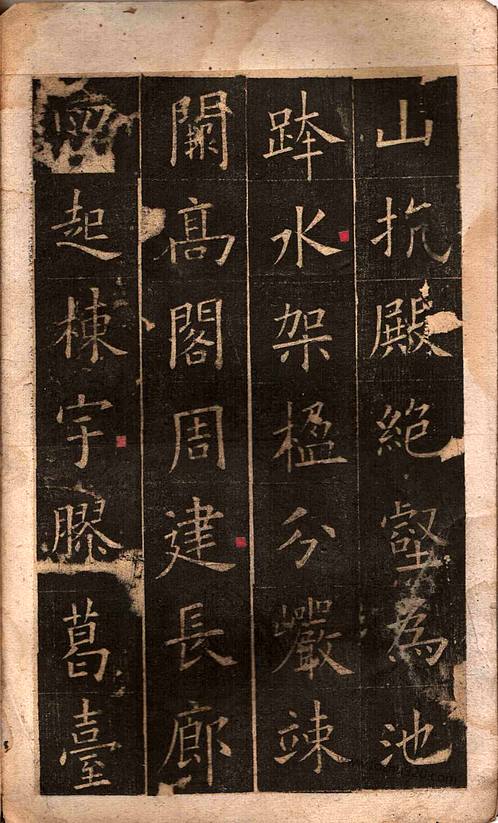 山抗殿絶壑為池
跨水架楹分巖竦
闕髙閣周建長廊
四起棟宇膠葛臺